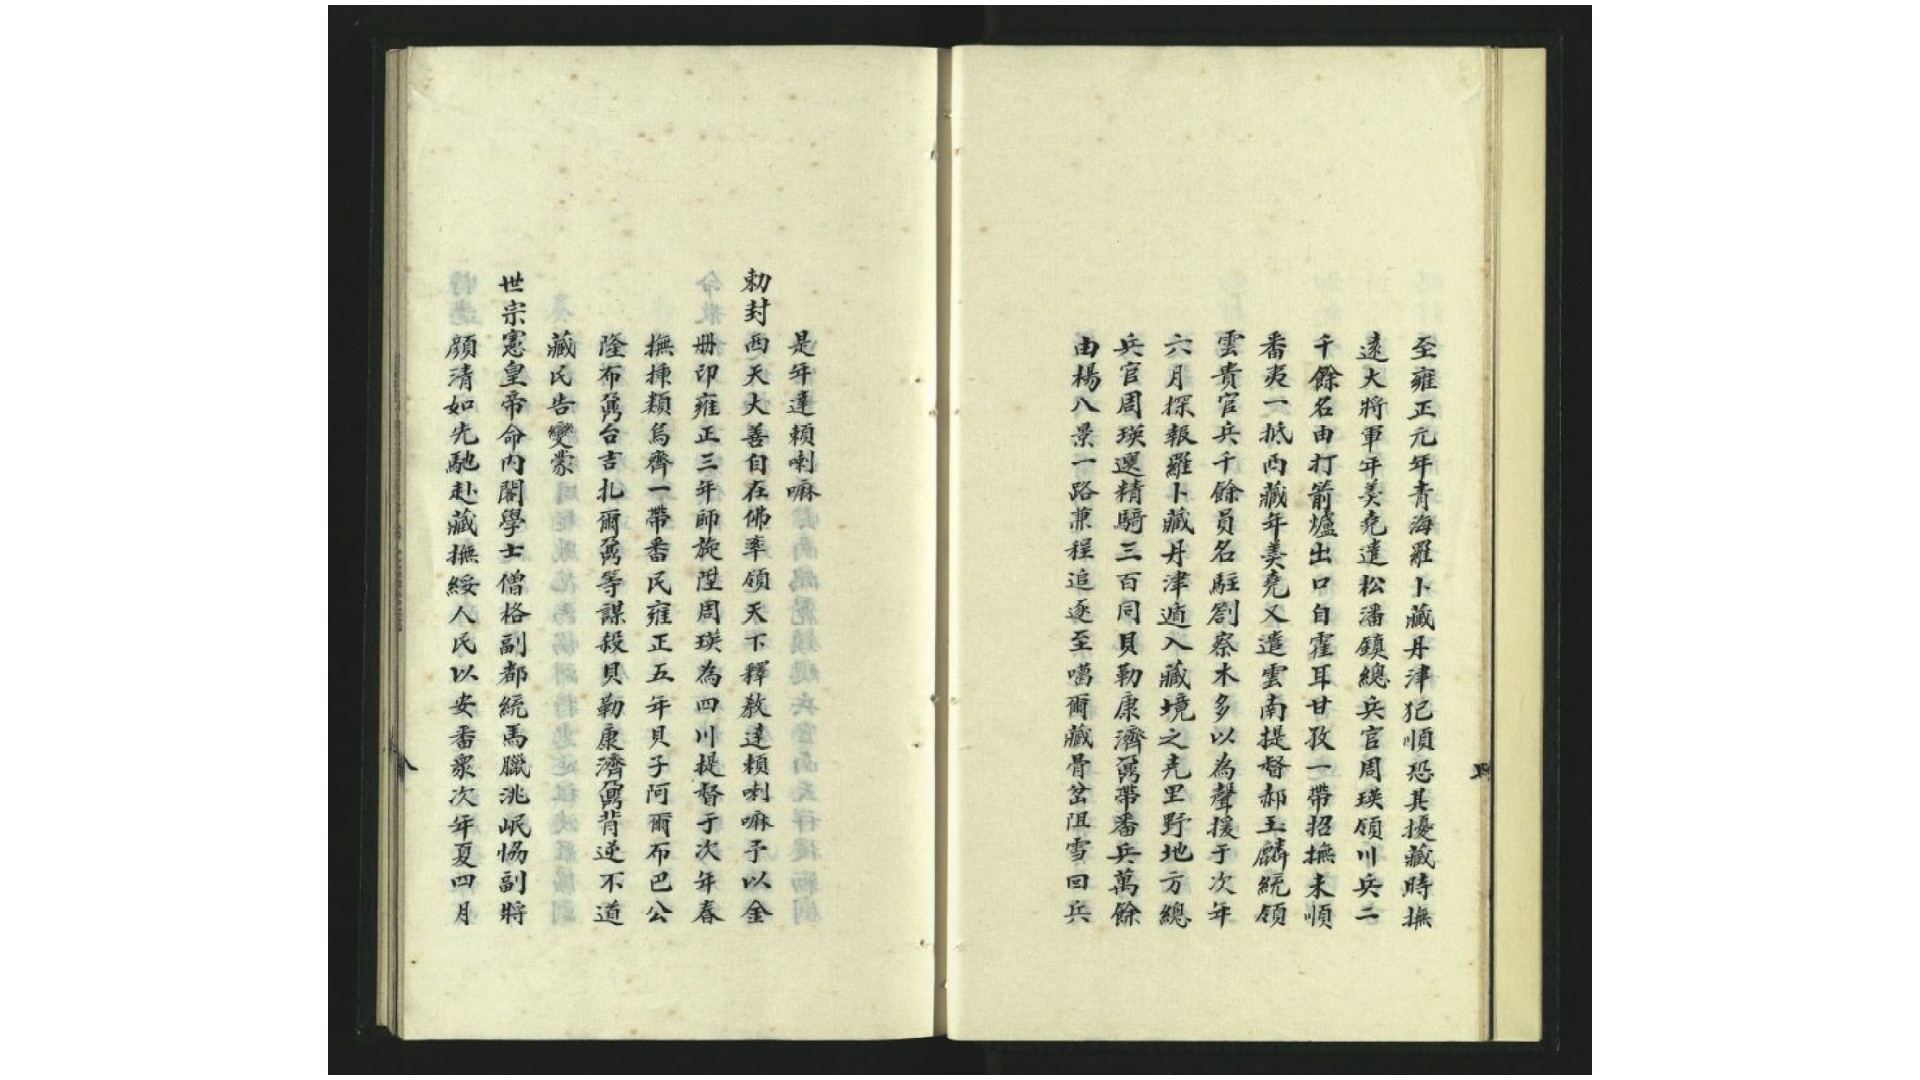 至雍正元年青海羅卜藏丹津犯順恐其擾藏時撫
遠大將軍年羹堯遣松潘鎮總兵官周瑛領川兵二
千餘名由打箭爐出口自霍耳甘孜一帶招撫未順
番夷一抵西藏年羹堯又遣雲南提督郝玉麟統領
雲貴官兵千餘員名駐劄察木多以為聲援于次年
六月探報羅卜藏丹津遁入藏境之克里野地方總
兵官周瑛選精騎三百同貝勒康濟鼐帶番兵萬餘
由楊八景一路兼程追逐至噶爾藏骨岔阻雪回兵
是年達賴喇嘛
勅封西天大善自在佛率領天下釋教達賴喇嘛予以金
冊印雍正三年師旋陞周瑛為四川提督于次年春
撫揀類烏齊一帶番民雍正五年貝子阿爾布巴公
隆布鼐台吉扎爾鼐等謀殺貝勒康濟鼐背逆不道
藏民告變蒙
世宗憲皇帝命內閣學士僧格副都統馬臘洮岷協副將
顏清如先馳赴藏撫綏人民以安番衆次年夏四月